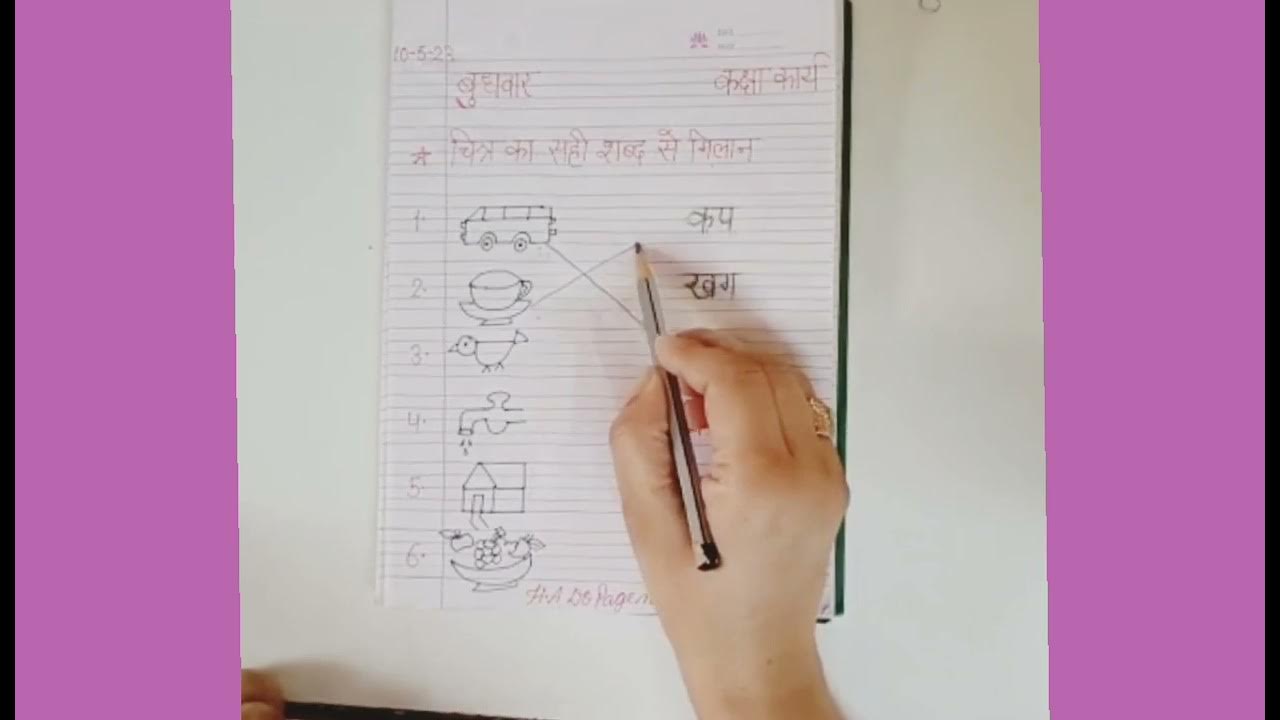 10-5-23
बुधवार कक्षा कार्य
* चित्र का सही शब्द से मिलान
1. कप
2. खग
3.
4.
5.
6.
H.A Do Page